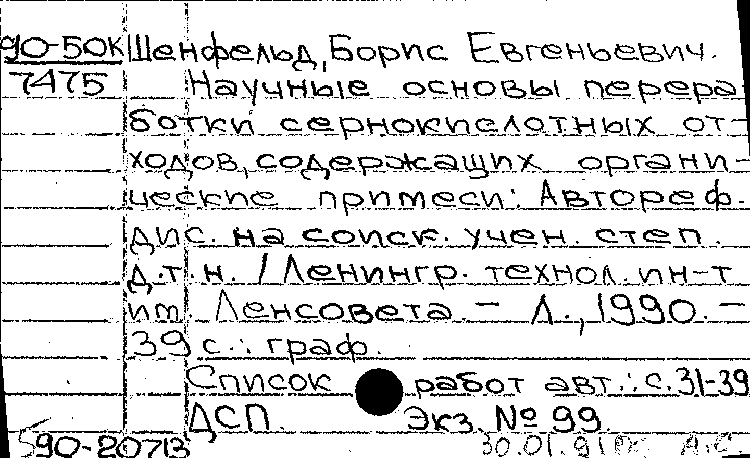 90-50к Шенфельд, Борис Евгеньевич.
7475 Научные основы перера
ботки сернокислотных от-
ходов, содержащих органи-
ческие примеси: Автореф.
дис. на соиск. учен. степ.
д.т.н. / Ленингр. технол. ин-т
им. Ленсовета. - Л., 1990. -
39 с.: граф.
Список работ авт.: с. 31-39
ДСП. Экз. № 99.
590-20713 30.01.91 А.С.